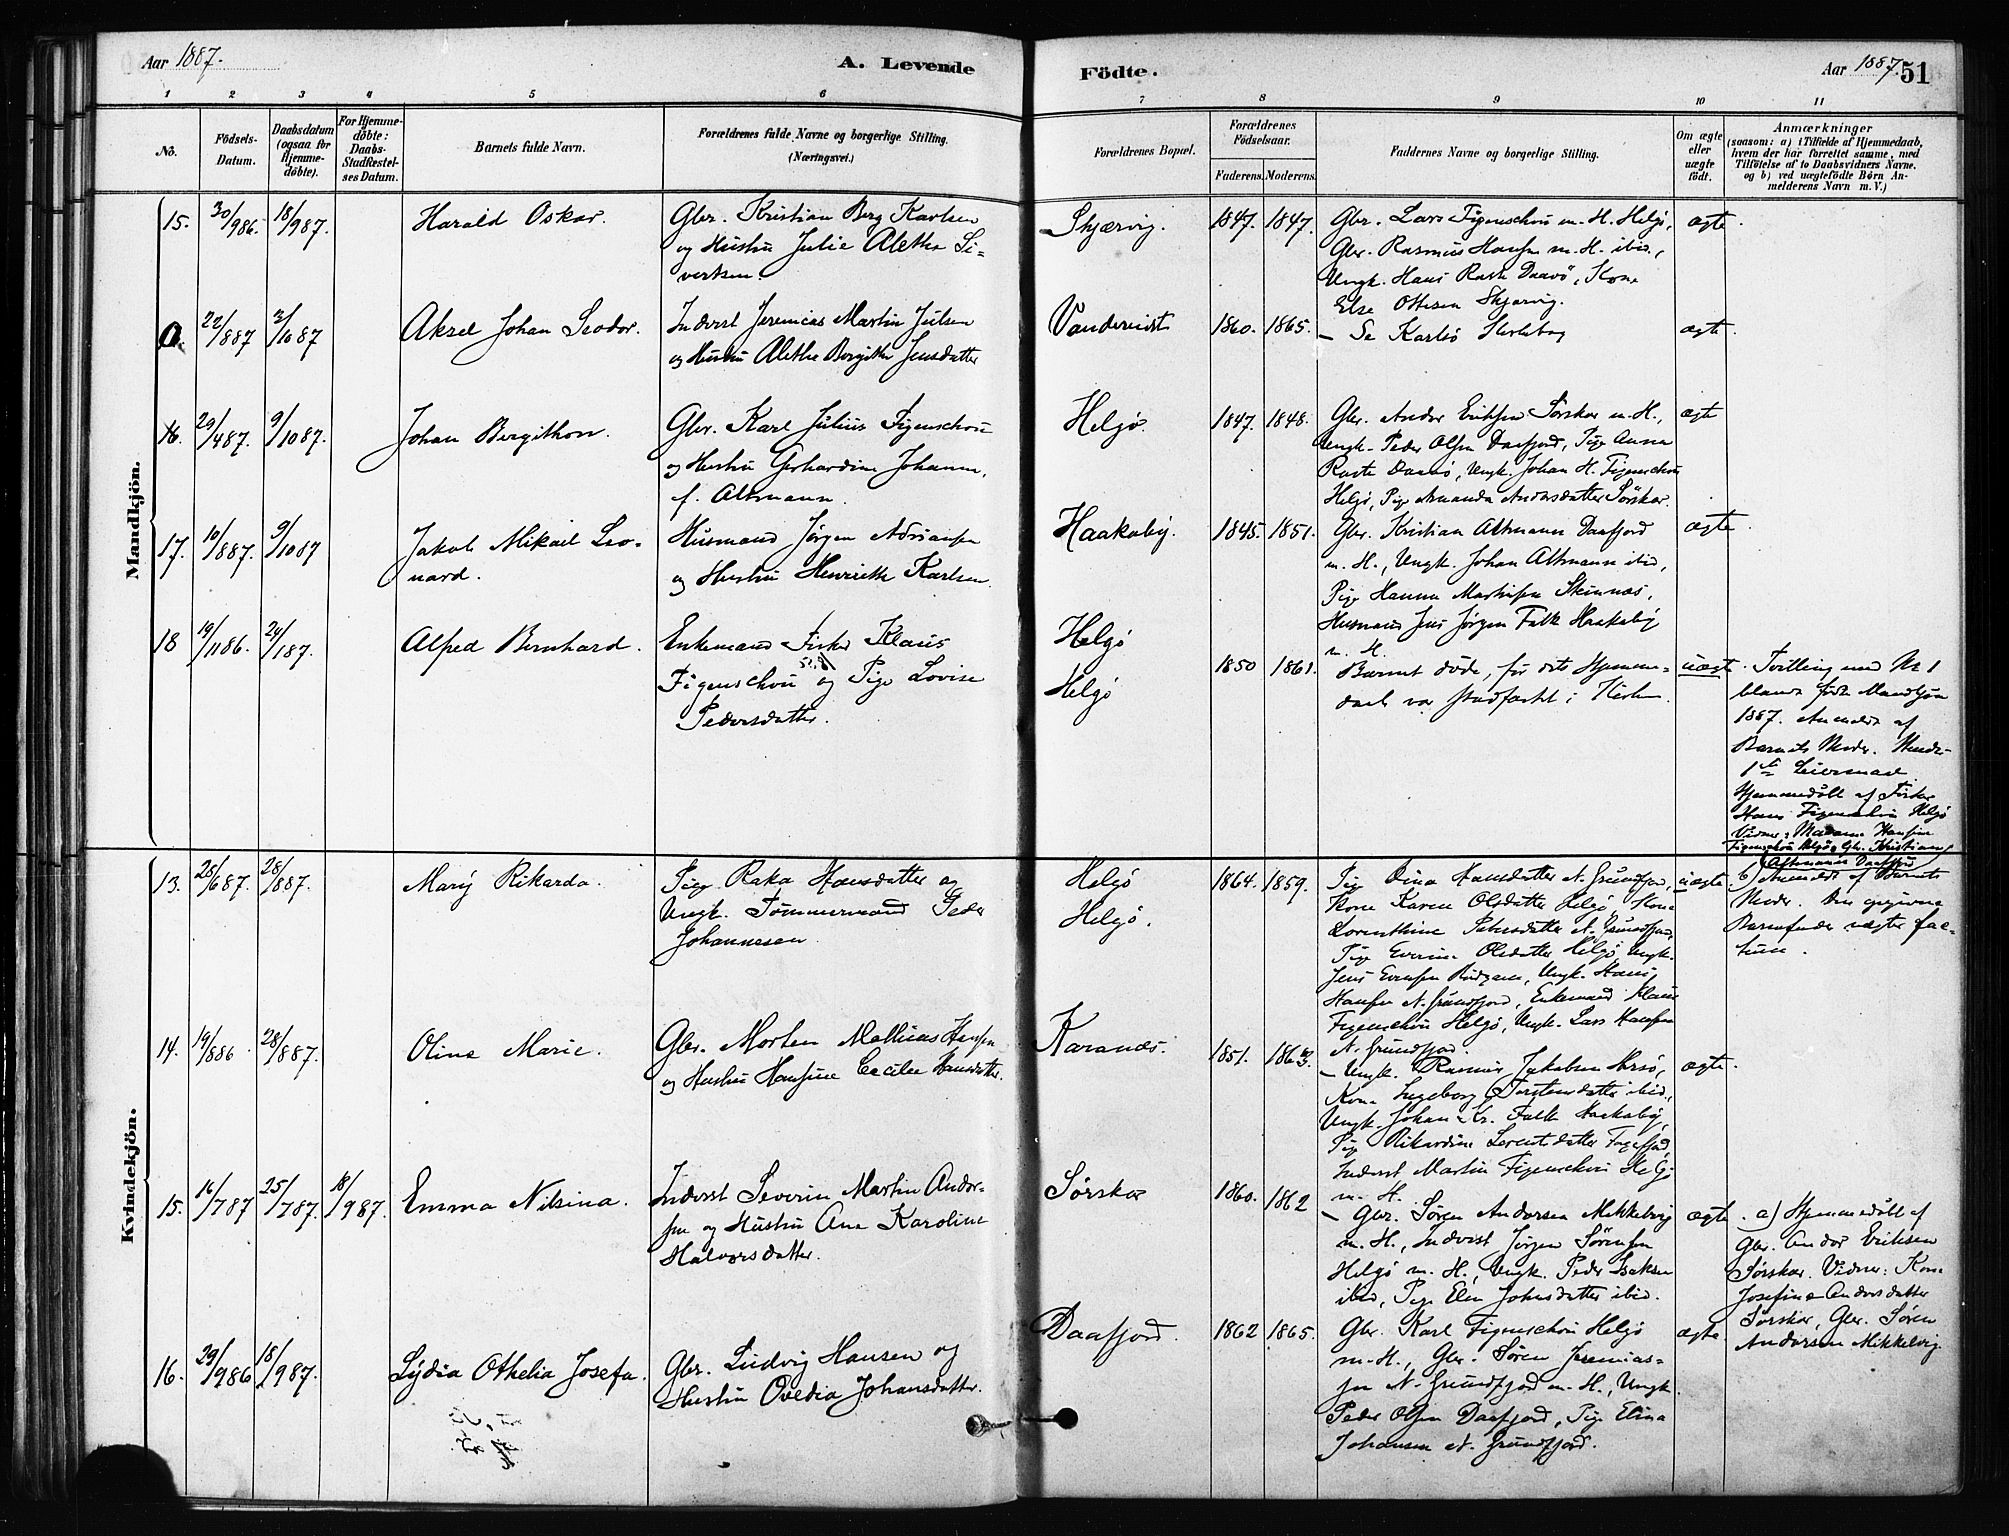 Aar 1887.
A. Levende
Födte.
Aar 1887.
51
1 2 3 4 5 6 7 8 9 10 11
No.
Födsels-
Datum.
Daabsdatum
(ogsaa for
Hjemme-
döbte).
For Hjemme-
döbte:
Daabs-
Stadfæstel-
ses Datum.
Barnets fulde Navn.
Forældrenes fulde Navne og borgerlige Stilling.
(Næringsvei.)
Forældrenes Bopæl.
Forældrenes
Födselsaar.
Faderens. Moderens.
Faddernes Navne og borgerlige Stilling.
Om ægte
eller
uægte
födt.
Anmærkninger
(saasom: a) i Tilfælde af Hjemmedaab,
hvem der har forrettet samme, med
Tilföielse af to Daabsvidners Navne.
og b) ved uægtefödte Börn An-
melderens Navn m. V.)
Mandkjön.
15. 30/986. 18/987. Harald Oskar. Gbr. Kristian Berg Karlsen
og Hustru Julie Alethe Si-
vertsen.
Skjærvig. 1847. 1847.
Gbr. Lars Figenschou m. H. Helgö,
Gbr. Rasmus Hansen m. H. ibid.,
Ungk. Hans Daavö, Kone
Else Ottesen Skjærvig.
ægte.
0. 22/887 2/1087 Aksel Johan Teodor. Inderst Jeremias Martin Julsen
og Hustru Alethe Bergithe Jensdatter
1860. 1865.
— Se Karlsö
ægte.
16. 29/487. 9/1087. Johan Bergithon. Gbr. Karl Julius Figenschou
og Hustru Gerhardine Johanne,
f. Altmann.
Helgö. 1847. 1848.
Gbr. Andor Eriksen Sörskar m. H.,
Ungk. Peder Olsen Daafjord, Pige Anna
Daavö, Ungk. Johan H. Figenschou
Helgö, Pige Amanda Andorsdatter Sörskar.
ægte
17. 10/887. 9/1087 Jakob Mikael Leo-
nard.
Husmand Jörgen Adriansen
og Hustru Henriette Karlsen.
Haakaby. 1845. 1851.
Gbr. Kristian Altmann Daafjord
m. H., Ungk. Johan Altmann ibid,
Pige Hanna Martinsen Skinnæs,
Husmand Jens Jörgen Falk Haakaby
m. H.
ægte.
18 19/1186. 24/187. Alfred Bernhard. Enkemand Fisker Klaus
Figenschou og Pige Lovise
Pedersdatter.
Helgö
Helgö
1850 1861.
Barnet döde, för dets Hjemme-
daab var stadfæstet i Kirken.
uægte.
Tvilling med No 1
blandt födte Mandkjön
1887. Anmeldt af
Barnets Moder.
1ste Leiermaal
Hjemmedöbt af Fisker
Hans Figenschou Helgö
Vidner: Madame Hansine
Figenschou Helgö og Gbr. Kristian
Altmann Daafjord
Kvindekjön.
13. 28/687. 28/887. Marij Rikarda. Pige Raka Hansdatter og
Ungk. Tömmermand Peder
Johannesen.
Helgö
Helgö.
1864. 1859.
Pige Dina Hansdatter N. Grundfjord,
Kone Karen Olsdatter Helgö, Kone
Dorenthine Petersdatter N. Grundfjord,
Pige Everine Olsdatter Helgö, Ungk.
Jens Evensen, Ungk. Hans
Hansen N. Grundfjord, Enkemand Klaus
Figenschou Helgö, Ungk. Lars Hansen
N. Grundfjord.
uægte
b) Anmeldt af Barnets
Moder. Den opgivne
Barnefader nægter fac-
tum.
14. 19/886. 28/887. Oline Marie. Gbr. Morten Mathias Hansen
og Hustru Hansine Cecilie Hansdatter.
Karanæs. 1851. 1863.
— Ungk. Rasmus Jakobsen,
Kone Ingeborg Torstensdatter ibid.,
Ungk. Johan Kr. Falk Haakaby,
Pige Rikardine Lorentsdatter Fagerfjord
Inderst Martin Figenschou Helgö
m. H.
ægte.
15. 16/787 25/787. 18/987. Emma Nilsina. Inderst Severin Martin Andor-
sen og Hustru Ane Karoline
Halvorsdatter.
Sörskar 1860. 1862
— Gbr. Sören Andersen Mikkelvig
m. H., Inderst Jörgen Sörensen
Helgö m. H., Ungk. Peder Isaksen
ibid, Pige Elen Johnsdatter ibid.
ægte.
a) Hjemmedöbt af
Gbr. Andor Eriksen
Sörskar. Vidner: Kone
Josefine Andorsdatter
Sörskar, Gbr. Sören
Andersen Mikkelvig.
16. 29/986 18/987. Lydia Othelia Josefa. Gbr. Ludvig Hansen og
Hustru Ovedia Johansdatter.
Daafjord. 1862 1865.
Gbr. Karl Figenschou Helgö
m. H., Gbr. Sören Jeremias-
sen N. Grundfjord m. H., Ungk.
Peder Olsen Daafjord, Pige Elina
Johansen N. Grundfjord.
ægte.